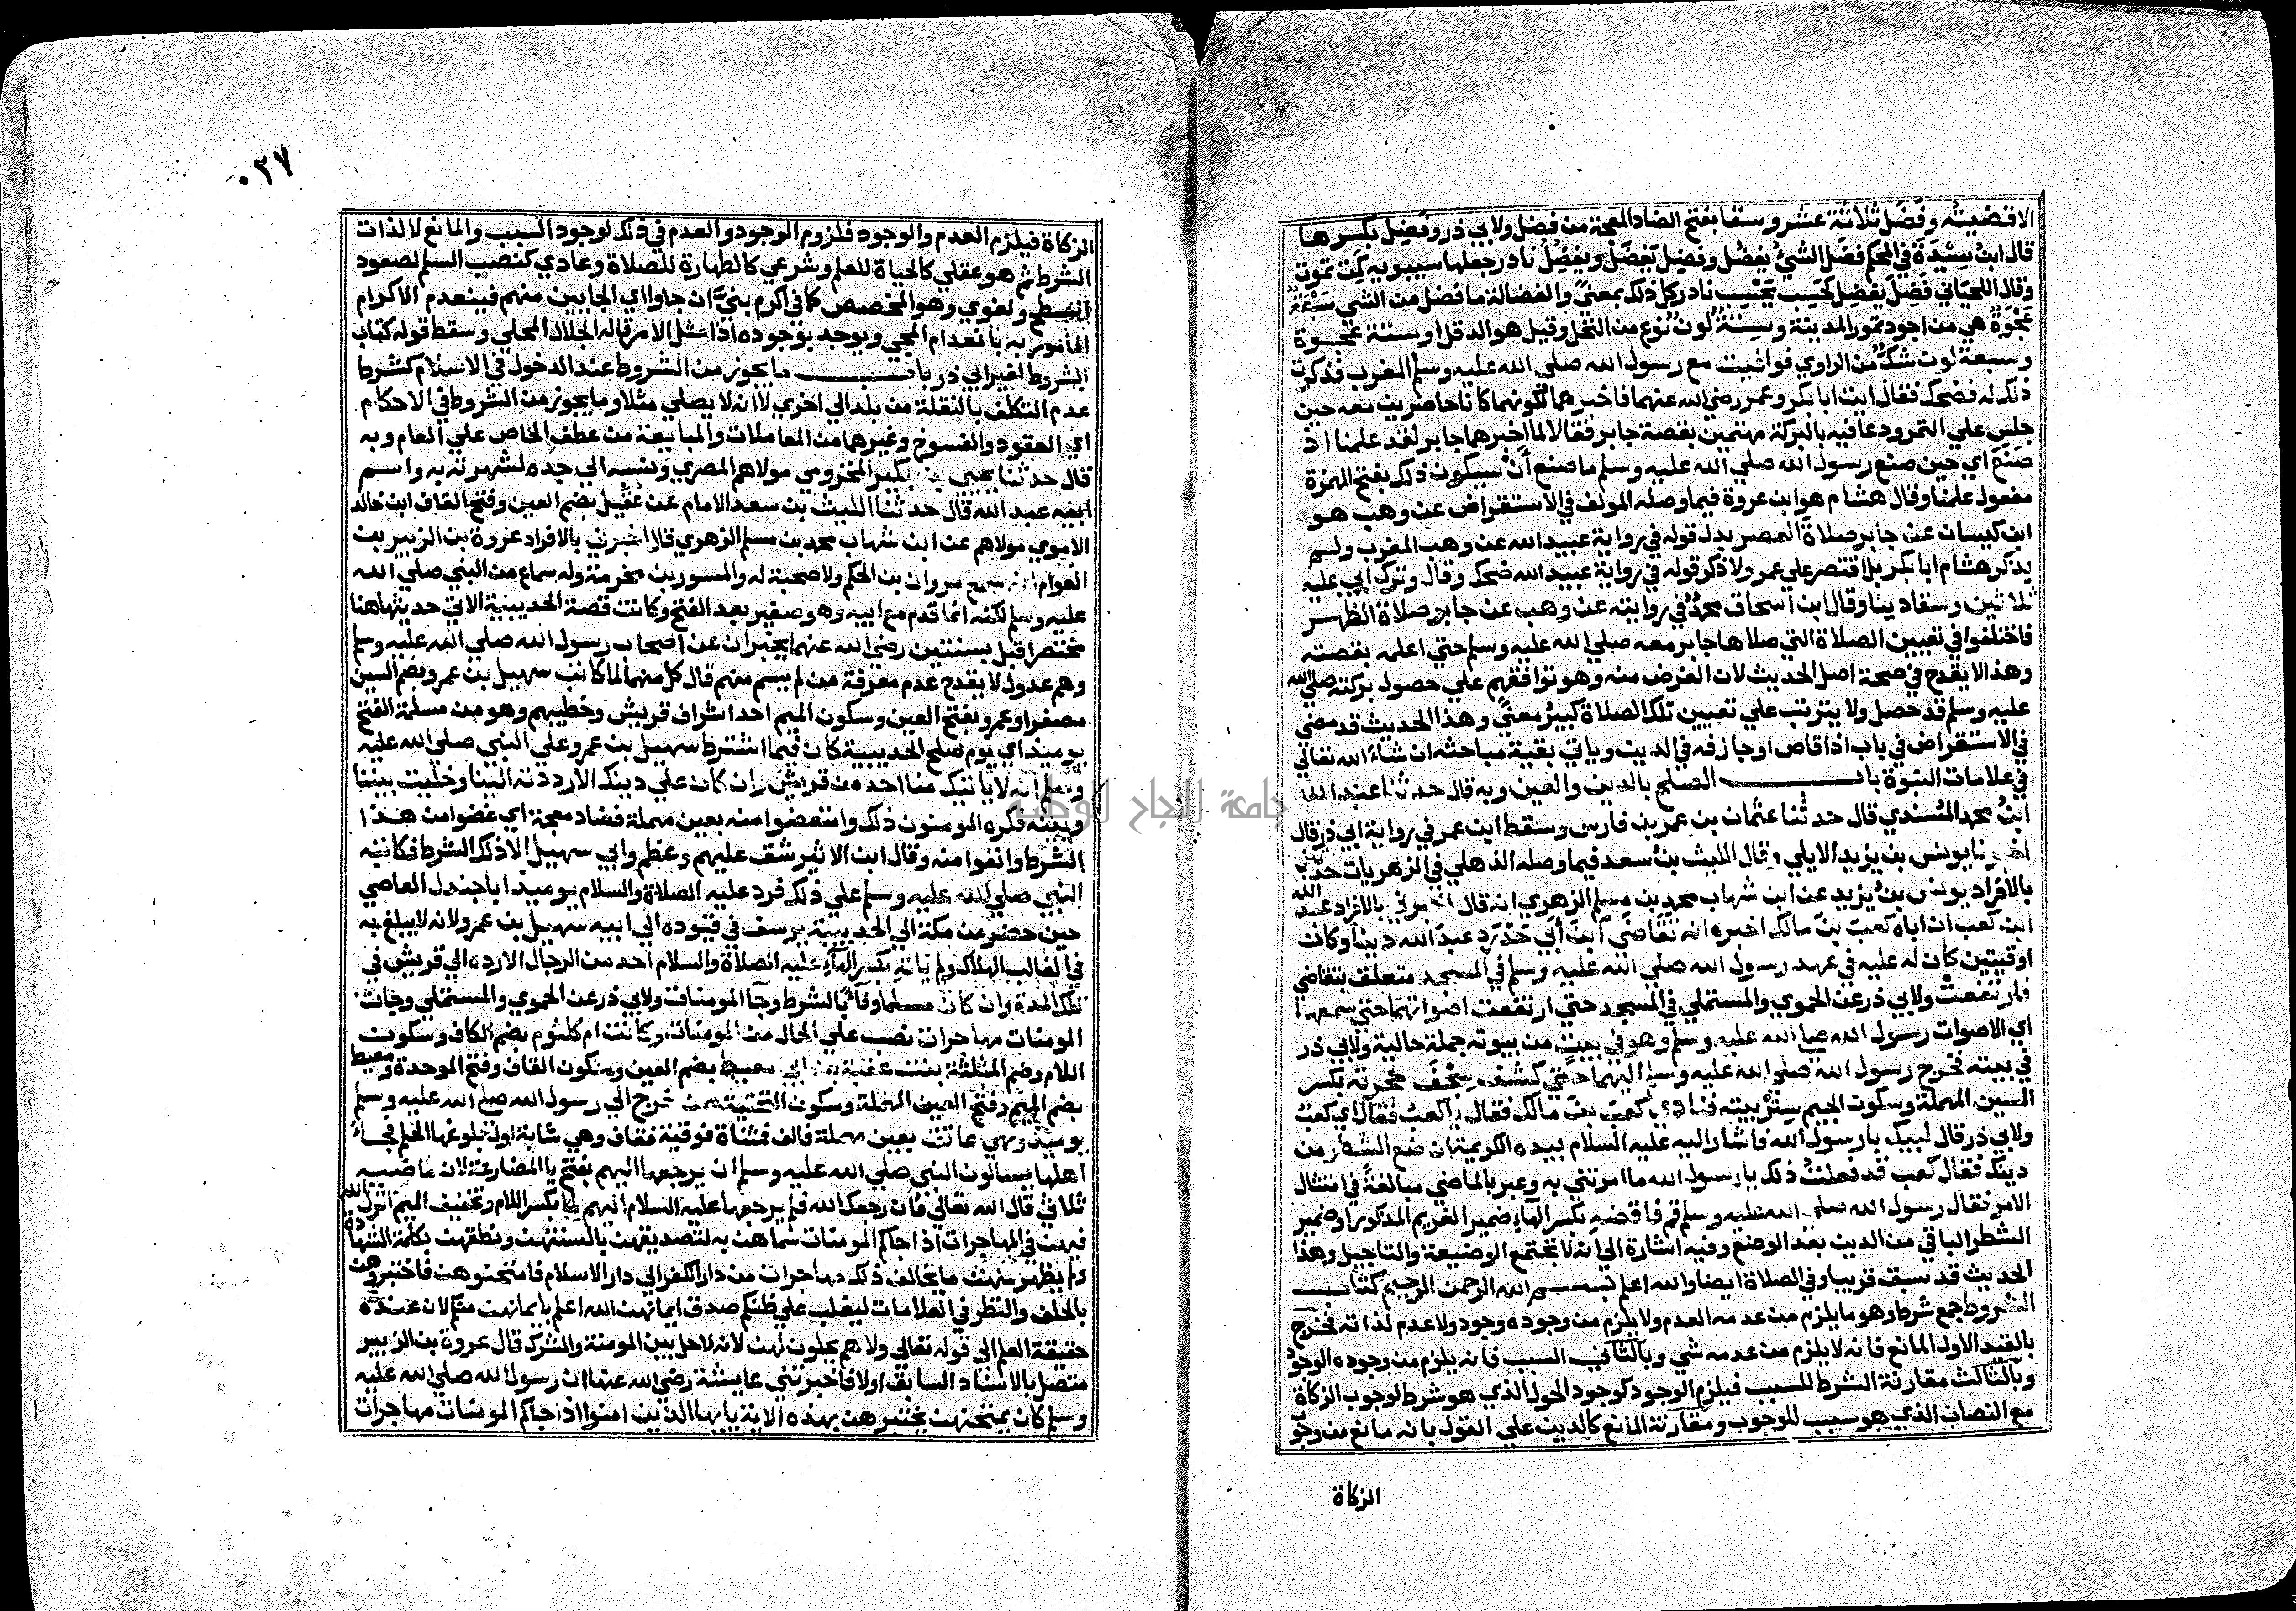 الاقضيته وفَضَل ثلاثة عشر وسقا بفتح الضاد المعجمة من فضل ولابي ذر وفضِل بكسرها
قال ابن سيدَة في المحكم فضَل الشيُ يفضُل وفضِل يَفضَل ويفضُل نادر جعلها سيبويه كمِت تموت
وقال اللحياني فَضِل يفضِل كحَسِب يَحسِب نادر كل ذلك بمعنيً والفضالة ما فضل من الشي سبعةٌ
عجْوَةٌ هي من اجود تمور المدينة وسِتَّةٌ لونٌ نوع من النخل وقيل هو الدقل او ستة عجوة
وسبعة لون شكٌّ من الراوي فوافيت مع رسول الله صلي الله عليه وسلم المغرب فذكرت
ذلك له فضحك فقال ايت ابا بكر وعمر رضي الله عنهما فاخبرهما لكونهما كانا حاضرين معه حين
جلس علي التمر ودعا فيه بالبركة مهتمين بقصة جابر فقالا لما اخبرهما جابر لقد علمنا اذ
صَنَعَ اي حين صنع رسول الله صلي الله عليه وسلم ما صنع أَنْ سيكون ذلك بفتح الهمزة
مفعول علمنا وقال هشام هو ابن عروة فيما وصله المولف في الاستقراض عن وهب هو
ابن كيسان عن جابر صلاة العصر بدل قوله في رواية عبيد الله عن وهب المغرب ولم
يذكر هشام ابا بكر بل اقتصر علي عمر ولا ذكر قوله في رواية عبيد الله ضحك وقال وترك ابي عليه
ثلاثين وسقا دينا وقال ابن اسحاق محمدٌ في روايته عن وهب عن جابر صلاة الظهر
فاختلفوا في تعيين الصلاة التي صلاها جابر معه صلي الله عليه وسلم حتي اعلمه بقصته
وهذا لا يقدح في صحة اصل الحديث لان الغرض منه وهو توافقهم علي حصول بركته صلي الله
عليه وسلم قد حصل ولا يترتب علي تعيين تلك الصلاة كبيرُ معنيً وهذا الحديث قد مضي
في الاستقراض في باب اذا قاص او جازفه في الدين وياتي بقية مباحثه ان شاء الله تعالي
في علامات النبوة باب الصلح بالدين والعين وبه قال حدثنا عبد الله
ابنُ محمد المُسندي قال حدثنا عثمان بن عمر بن فارس وسقط ابن عمر في رواية ابي ذر قال
اخبرنا يونس بن يزيد الايلي وقال الليث بنُ سعد فيما وصله الذهلي في الزهريات حدثني
بالافراد يونس بنُ يزيد عن ابن شهاب محمد بن مسلم الزهري انه قال اخبرني بالافراد عبد الله
ابن كعب ان اباه كعبَ بنَ مالك اخبره انه تَقَاضَي ابنَ أبي حَدْرَدٍ عبدَ الله دينا وكان
اوقيتين كان له عليه في عهد رسول الله صلي الله عليه وسلم في المسجد متعلق بتقاضي
فارتفعتْ ولابي ذر عن الحموي والمستملي في المسجد حتي ارتفعت اصواتهما حتي سمعها
اي الاصوات رسول الله صلي الله عليه وسلم وهو في بيتٍ من بيوته جملة حالية ولابي ذر
في بيته فخرج رسول الله صلي الله عليه وسلم اليهما حتي كشف سِجْفَ حجرته بكسر
السين المهملة وسكون الجيم سِتْرَ بيته فنادي كعبَ بنَ مالك فقال يا كعبُ فقال اي كعبُ
ولابي ذر قال لبيك يا رسول الله فاشار اليه عليه السلام بيده الكريمة ان ضع الشطر من
دينك فقال كعب قد فعلتُ ذلك يا رسول الله ما امرتني به وعبر بالماضي مبالغةً في امتثال
الامر فقال رسول الله صلي الله عليه وسلم قم فاقضه بكسر الهاء ضمير الغريم المذكور او ضمير
الشطر الباقي من الدين بعد الوضع وفيه اشارة الي انه لا تجتمع الوضيعة والتاجيل وهذا
الحديث قد سبق قريبا وفي الصلاة ايضا والله اعلم بسم الله الرحمن الرحيم كتاب
الشروط جمع شرط وهو ما يلزم من عدمه العدم ولا يلزم من وجوده وجود ولا عدم لذاته فخرج
بالقيد الاول المانع فانه لا يلزم من عدمه شي وبالثاني السبب فانه يلزم من وجوده الوجود
وبالثالث مقارنة الشرط للسبب فيلزم الوجود كوجود الحول الذي هو شرط لوجوب الزكاة
مع النصاب الذي هو سبب للوجوب ومقارنة المانع كالدين علي القول بانه مانع من وجوب
الزكاة
٠٣٧
الزكاة فيلزم العدم والوجود فلزوم الوجود والعدم في ذلك لوجود السبب والمانع لا لذات
الشرط ثم هو عقلي كالحياة للعلم وشرعي كالطهارة للصلاة وعادي كنصب السلم لصعود
السطح ولغوي وهو المخصص كما في اكرم بنيَّ ان جاوا اي الجايين منهم فينعدم الاكرام
المامور به بانعدام المجي ويوجد بوجوده اذا امتثل الامر قاله الجلال المحلي وسقط قوله كتاب
الشروط لغير ابي ذر باب ما يجوز من الشروط عند الدخول في الاسلام كشرط
عدم التكلف بالنقلة من بلد الي اخري لا انه لا يصلي مثلا وما يجوز من الشروط في الاحكام
اي العقود والفسوخ وغيرهما من المعاملات والمبايعة من عطف الخاص علي العام وبه
قال حدثنا يحيي بن بكير المخزومي مولاهم المصري ونسبه الي جده لشهرته به واسم
ابيه عبد الله قال حدثنا الليث بن سعد الامام عن عُقَيل بضم العين وفتح القاف ابن خالد
الاموي مولاهم عن ابن شهاب محمد بن مسلم الزهري قال اخبرني بالافراد عروة بن الزبير بن
العوام انه سمع مروان بن الحكم ولا صحبة له والمسور بن مخرمة وله سماع من النبي صلي الله
عليه وسلم لكنه انما قدم مع ابيه وهو صغير بعد الفتح وكانت قصة الحديبية الاتي حديثها هنا
مختصرا قبل بسنتين رضي الله عنهما يخبران عن اصحاب رسول الله صلي الله عليه وسلم
وهم عدول لا يقدح عدم معرفة من لم يسم منهم قال كل منهما لما كاتب سهيل بن عمرو بضم السين
مصغرا وعمرو بفتح العين وسكون الميم احد اشراف قريش وخطيبهم وهو من مسلمة الفتح
يوميذ اي يوم صلح الحديبية كان فيما اشترط سهيل بن عمرو علي النبي صلي الله عليه
وسلم انه لا ياتيك منا احد من قريش وان كان علي دينك الا رددته الينا وخليت بيننا
وبينه فكره المومنون ذلك وامتعضوا منه بعين مهملة فضاد معجمة اي غضبوا من هذا
الشرط وانفوا منه وقال ابن الاثير شق عليهم وعظم وابي سهيل الا ذلك الشرط فكاتبه
النبي صلي الله عليه وسلم علي ذلك فرد عليه الصلاة والسلام يوميذ ابا جندل العاصي
حين حضر من مكة الي الحديبية يرسف في قيوده الي ابيه سهيل بن عمرو لانه لا يبلغ به
في الغالب الهلاك ولم ياته بكسر الهاء عليه الصلاة والسلام احد من الرجال الا رده الي قريش في
تلك المدة وان كان مسلما وفآءً بالشرط وجآ المومنات ولابي ذر عن الحموي والمستملي وجات
المومنات مهاجرات نصب علي الحال من المومنات وكانت ام كلثوم بضم الكاف وسكون
اللام وضم المثلثة بنت عقبة بن ابي معيط بضم العين وسكون القاف وفتح الموحدة ومعيط
بضم الميم وفتح العين المهملة وسكون التحتية ممن خرج الي رسول الله صلي الله عليه وسلم
يوميذ وهي عاتق بعين مهملة فالف فمثناة فوقية فقاف وهي شابة اول بلوغها الحلم فجاءَ
اهلها يسالون النبي صلي الله عليه وسلم ان يرجعها اليهم بفتح يا المضارعة لان ماضيه
ثلاثي قال الله تعالي فان رجعك الله فلم يرجعها عليه السلام اليهم لما بكسر اللام وتخفيف الميم انزل الله
فيهن في المهاجرات اذا جاكم المومنات سماهن به لتصديقهن بالسنتهن ونطقهن بكلمة الشهادة
ولم يظهر منهن ما يخالف ذلك مهاجرات من دار الكفر الي دار الاسلام فامتحنوهن فاختبروهن
بالحلف والنظر في العلامات ليغلب علي ظنكم صدق ايمانهن الله اعلم بايمانهن منكم لان عنده
حقيقة العلم الي قوله تعالي ولا هم يحلون لهن لانه لا حل بين المومنة والمشرك قال عروة بن الزبير
متصل بالاسناد السابق اولا فاخبرتني عايشة رضي الله عنها ان رسول الله صلي الله عليه
وسلم كان يمتحنهن يختبرهن بهذه الاية يايها الذين امنوا اذا جاكم المومنات مهاجرات
جامعة النجاح الوطنية